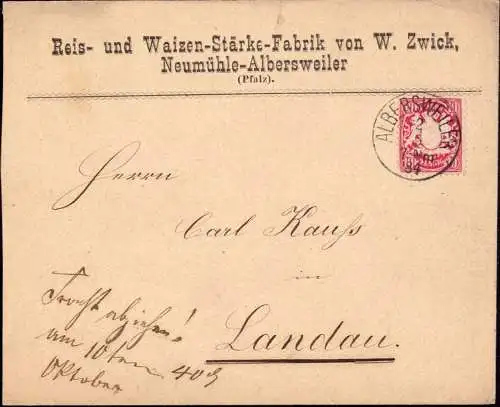 Reis- und Waizen-Stärke-Fabrik von W. Zwick,
Neumühle-Albersweiler
(Pfalz).
ALBERSWEILER
84
Herrn
Carl Kauss
in
Landau.
am 10ten
Oktober